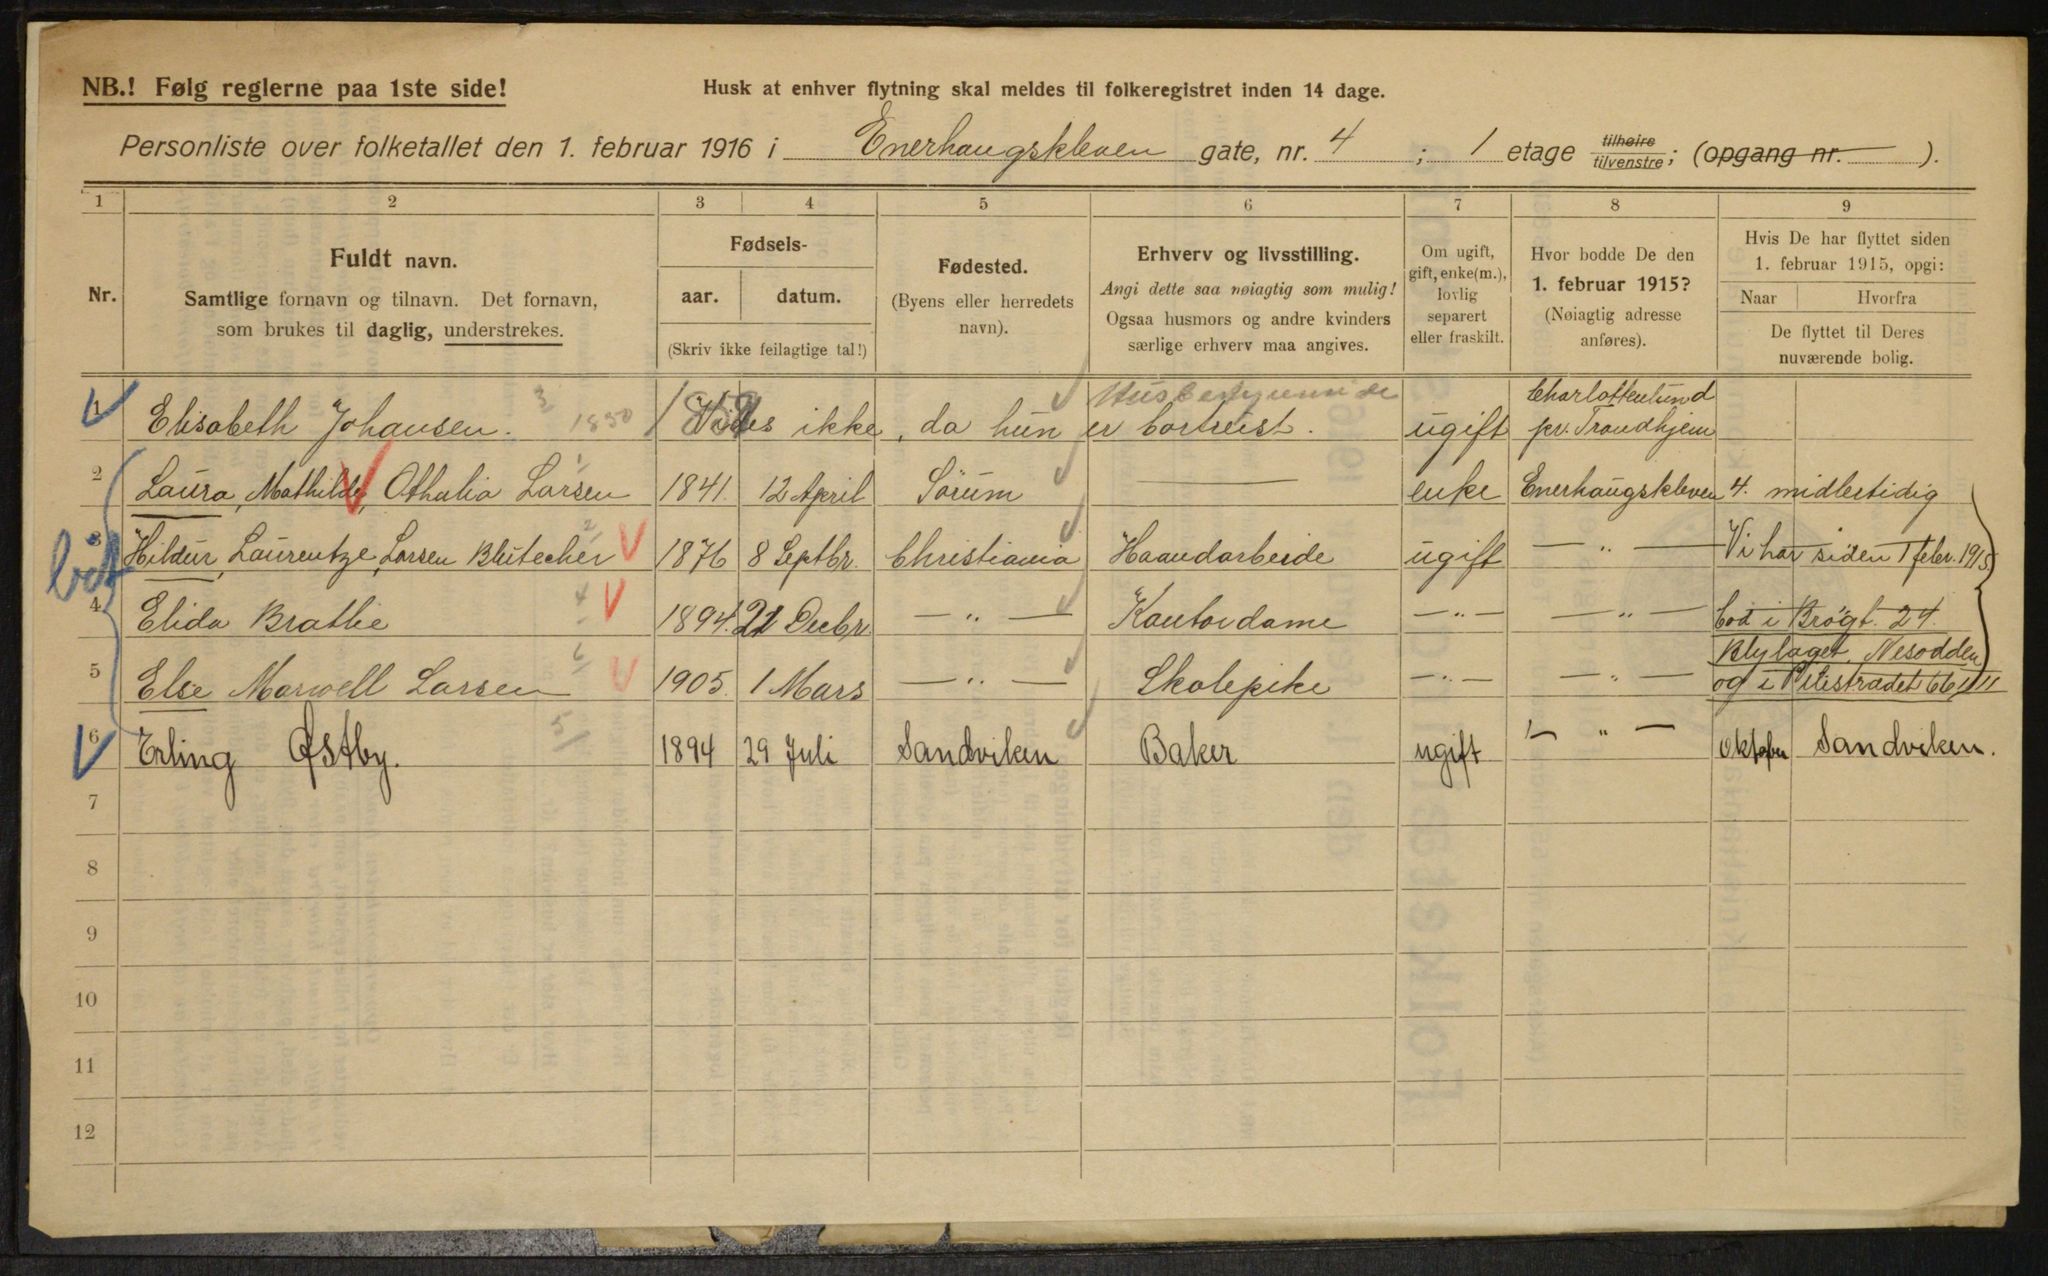 NB.! Følg reglerne paa 1ste side!
Husk at enhver flytning skal meldes til folkeregistret inden 14 dage.
Personliste over folketallet den 1. februar 1916 i Enerhaugskleven gate, nr. 4 ; 1 etage tilhøire tilvenstre; (opgang nr. ).
1 2 3 4 5 6 7 8 9
Nr.
Fuldt navn.
Samtlige fornavn og tilnavn. Det fornavn,
som brukes til daglig, understrekes.
Fødsels-
aar. datum.
(Skriv ikke feilagtige tal!)
Fødested.
(Byens eller herredets
navn).
Erhverv og livsstilling.
Angi dette saa nøiagtig som mulig!
Ogsaa husmors og andre kvinders
særlige erhverv maa angives.
Om ugift,
gift, enke(m.),
lovlig
separert
eller fraskilt.
Hvor bodde De den
1. februar 1915?
(Nøiagtig adresse
anføres).
Hvis De har flyttet siden
1. februar 1915, opgi:
Naar Hvorfra
De flyttet til Deres
nuværende bolig.
1 Elisabeth Johansen. 3 1850 Vides ikke, da hun er bortreist. ugift Charlottenlund
pr. Trondhjem
2 Laura, Mathilde, Othalia Larsen 1 1841. 12 April Sørum — enke Enerhaugskleven 4. midlertidig
3 Hildur, Laurentze, Larsen Blutecher 2 1876 8 Septbr. Christiania Haandarbeide ugift — " — Vi har siden 1 febr. 1915
4 Elida Brathe 4 1894. 21 Decbr — " — Kontordame — " — — " — bod i Brøgt. 24.
Blylaget, Nesodden
5 Else Marwell Larsen 6 1905. 1 Mars — " — Skolepike — " — — " — og i Pilestrædet 66 III
6 Erling Østby. 5 1894 29 Juli Sandviken Baker ugift — " — Oktober Sandviken.
7
8
9
10
11
12